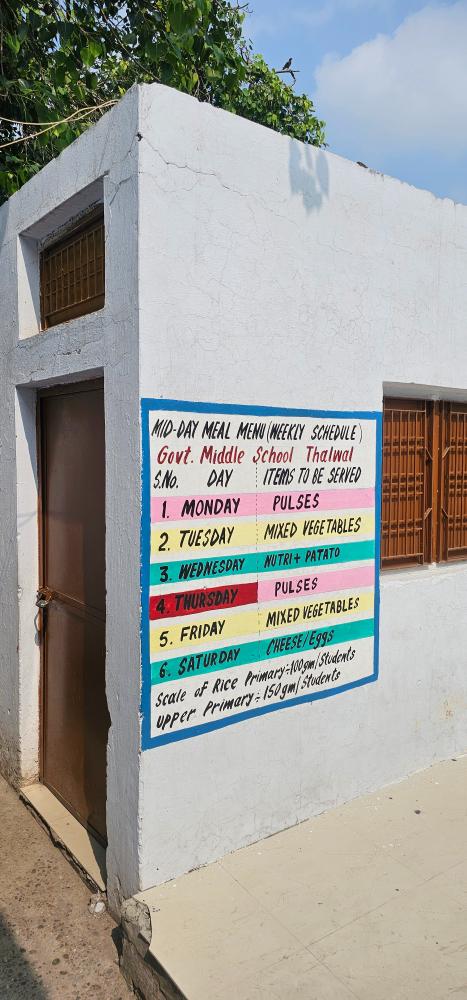 MID-DAY MEAL MENU (WEEKLY SCHEDULE)
Govt. Middle School Thalwal
S.No. DAY ITEMS TO BE SERVED
1. MONDAY PULSES
2. TUESDAY MIXED VEGETABLES
3. WEDNESDAY NUTRI+ PATATO
4. THURSDAY PULSES
5. FRIDAY MIXED VEGETABLES
6. SATURDAY CHEESE/Eggs
Scale of Rice Primary÷100gm/Students
Upper Primary÷150gm/Students